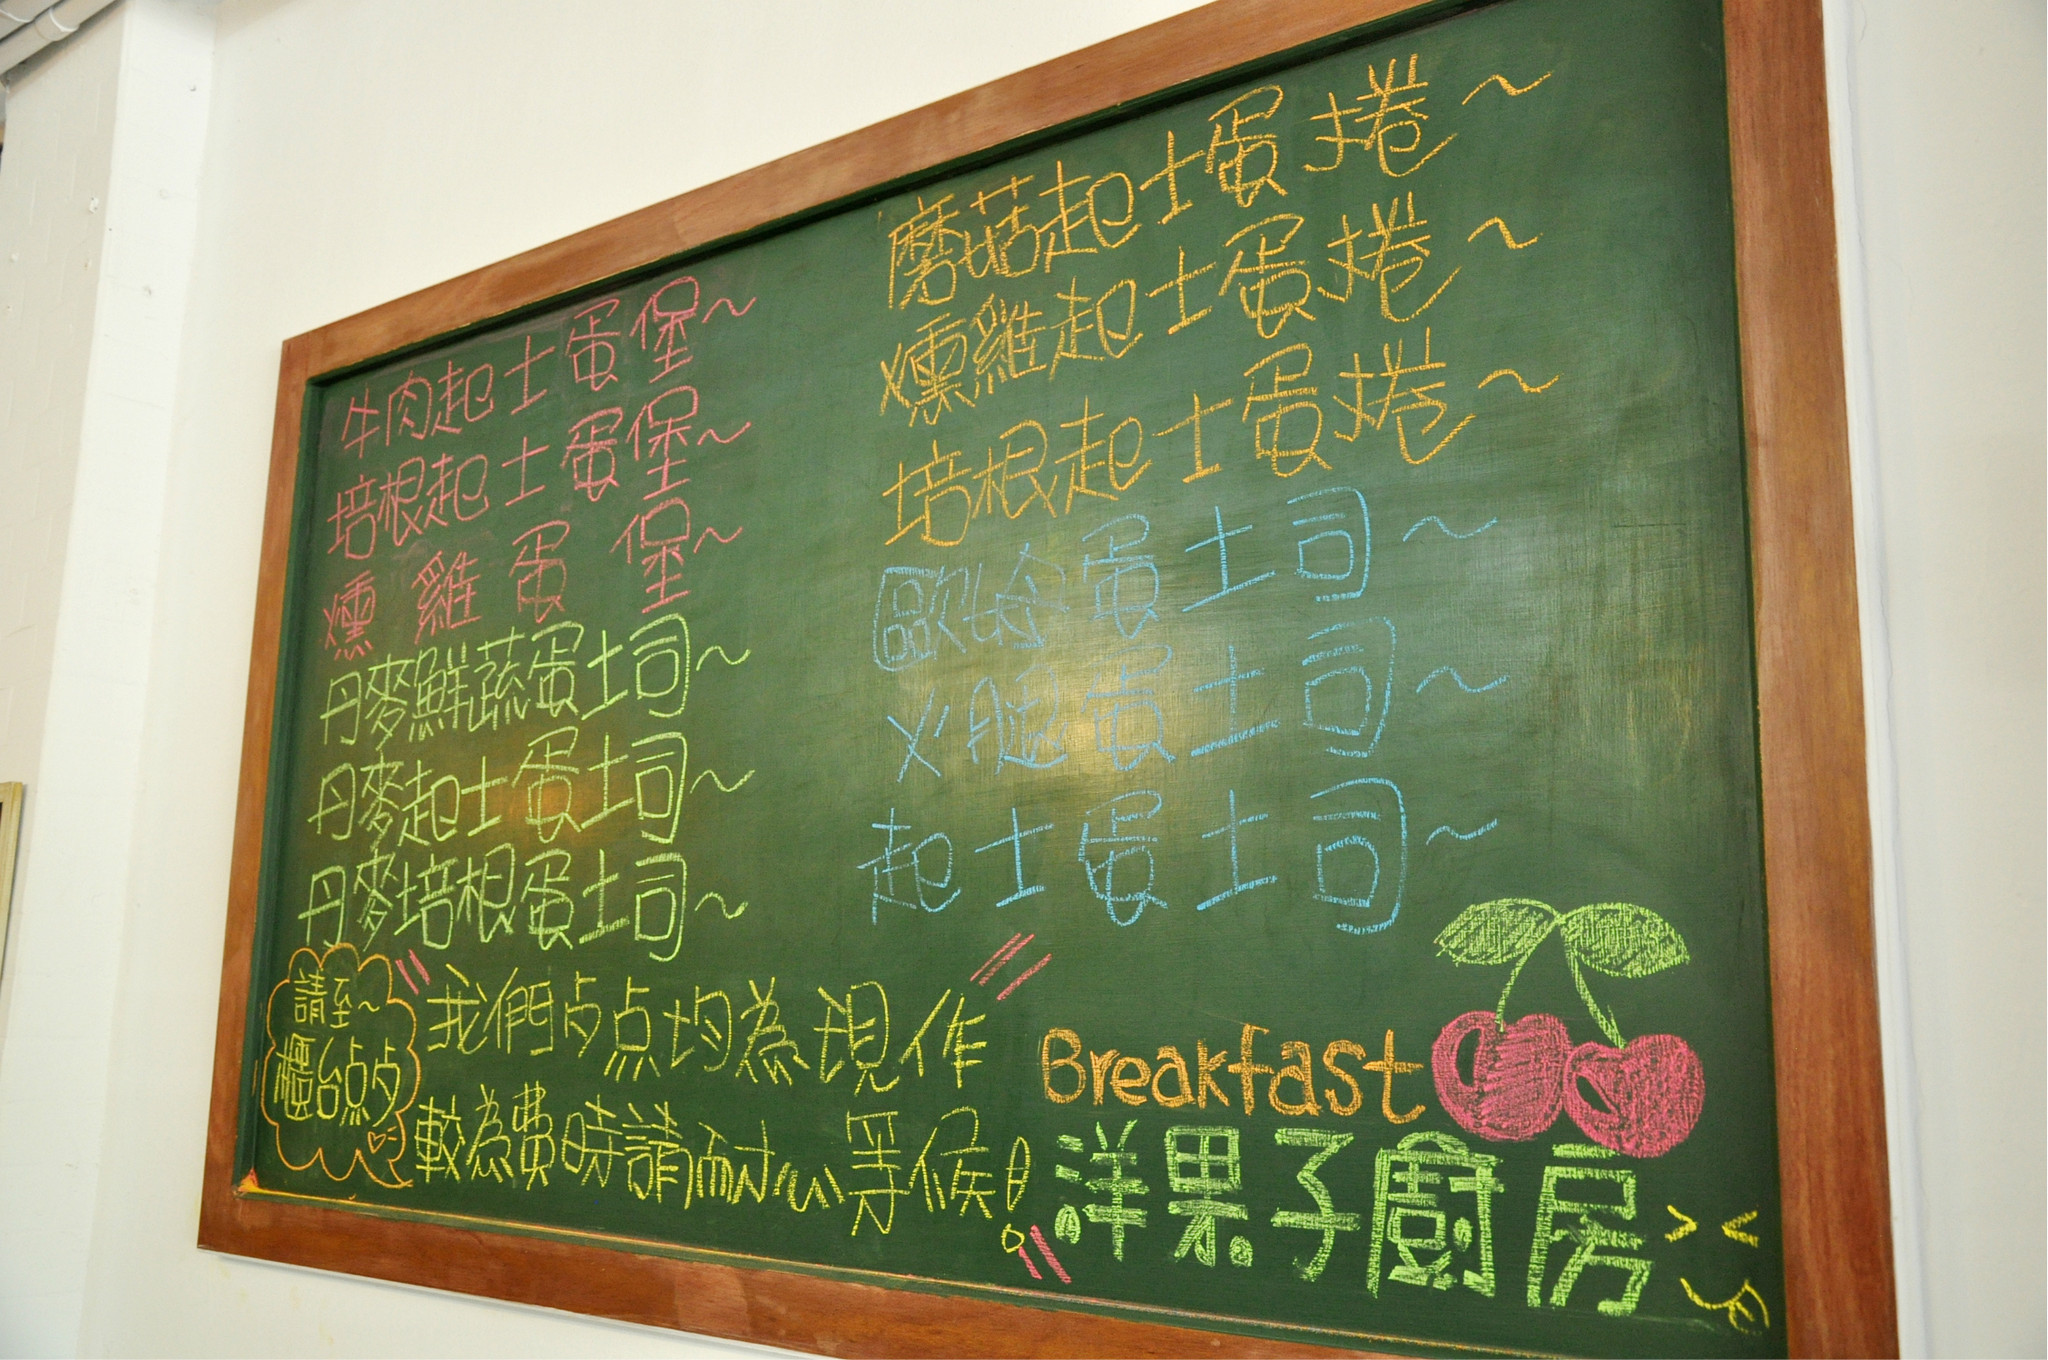 牛肉起士蛋堡~
培根起士蛋堡~
燻雞蛋堡~
丹麥鮮蔬蛋土司~
丹麥起士蛋土司~
丹麥培根蛋土司~
蘑菇起士蛋捲~
燻雞起士蛋捲~
培根起士蛋捲~
歐姆蛋土司~
火腿蛋土司~
起士蛋土司~
請至~
櫃台点占
我們占点均為現作
較為費時請耐心等候!
Breakfast
洋果子廚房